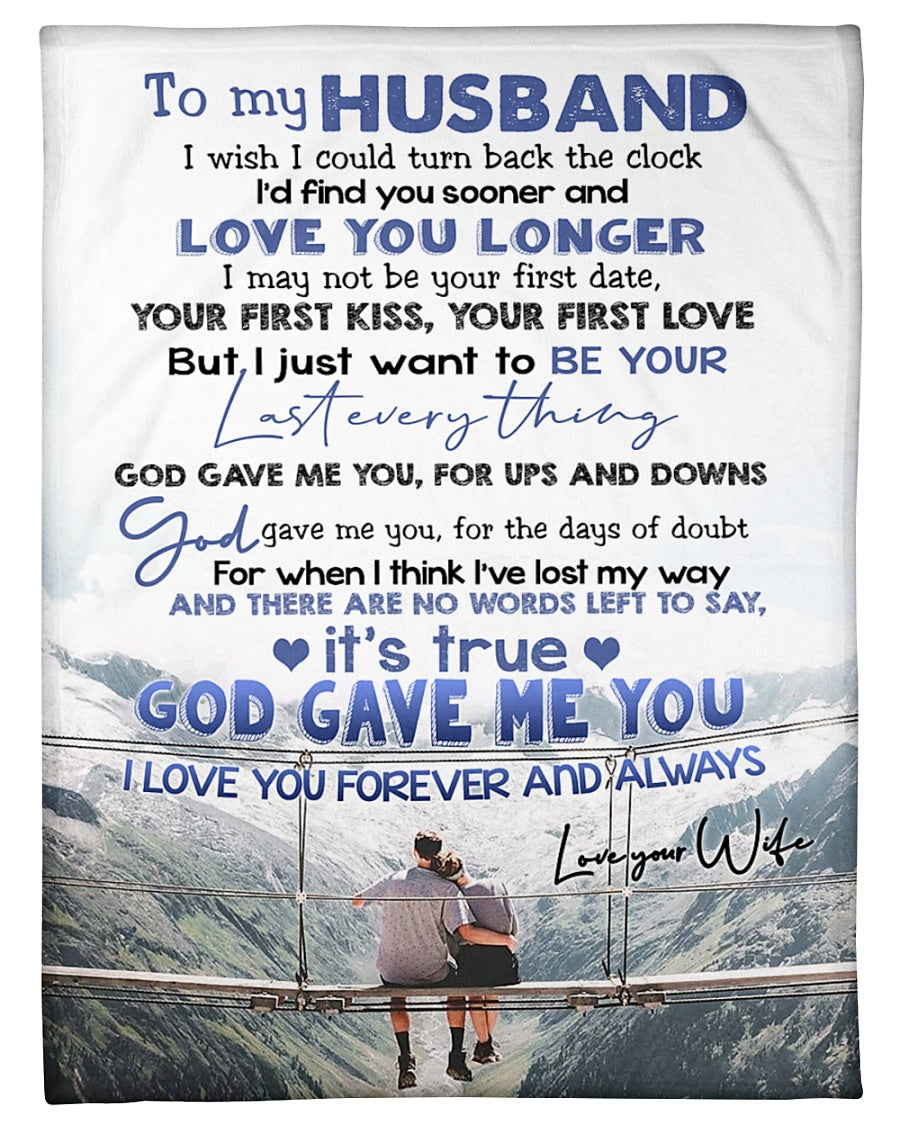 To my HUSBAND
I wish I could turn back the clock
I'd find you sooner and
LOVE YOU LONGER
I may not be your first date,
YOUR FIRST KISS, YOUR FIRST LOVE
But I just want to BE YOUR
Last everything
GOD GAVE ME YOU, FOR UPS AND DOWNS
God gave me you, for the days of doubt
For when I think I've lost my way
AND THERE ARE NO WORDS LEFT TO SAY,
it's true
GOD GAVE ME YOU
I LOVE YOU FOREVER AND ALWAYS
Love your Wife